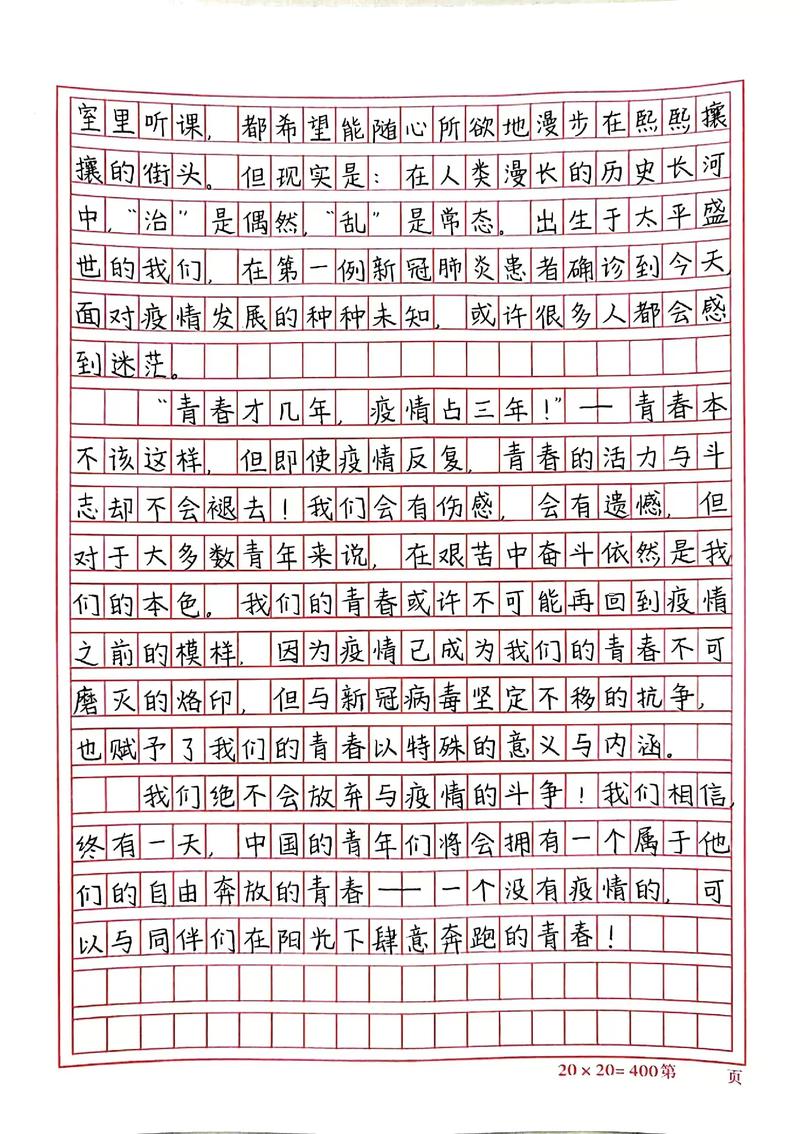 室里听课，都希望能随心所欲地漫步在熙熙攘
攘的街头。但现实是：在人类漫长的历史长河
中，“治”是偶然，“乱”是常态。出生于太平盛
世的我们，在第一例新冠肺炎患者确诊到今天，
面对疫情发展的种种未知，或许很多人都会感
到迷茫。
“青春才几年，疫情占三年！”——青春本
不该这样，但即使疫情反复，青春的活力与斗
志却不会褪去！我们会有伤感，会有遗憾，但
对于大多数青年来说，在艰苦中奋斗依然是我
们的本色。我们的青春或许不可能再回到疫情
之前的模样，因为疫情已成为我们的青春不可
磨灭的烙印，但与新冠病毒坚定不移的抗争，
也赋予了我们的青春以特殊的意义与内涵。
我们绝不会放弃与疫情的斗争！我们相信，
终有一天，中国的青年们将会拥有一个属于他
们的自由奔放的青春——一个没有疫情的，可
以与同伴们在阳光下肆意奔跑的青春！
20×20=400第 页